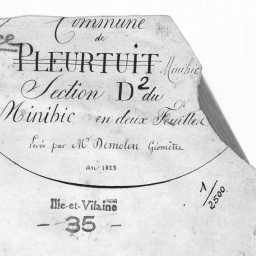 Commune
de
PLEURTUIT Minihic
Section D² du
Minihic en deux Feuilles
Levée par Mr Demolen Géomètre
an 1823
1/2500
Ille-et-Vilaine
- 35 -